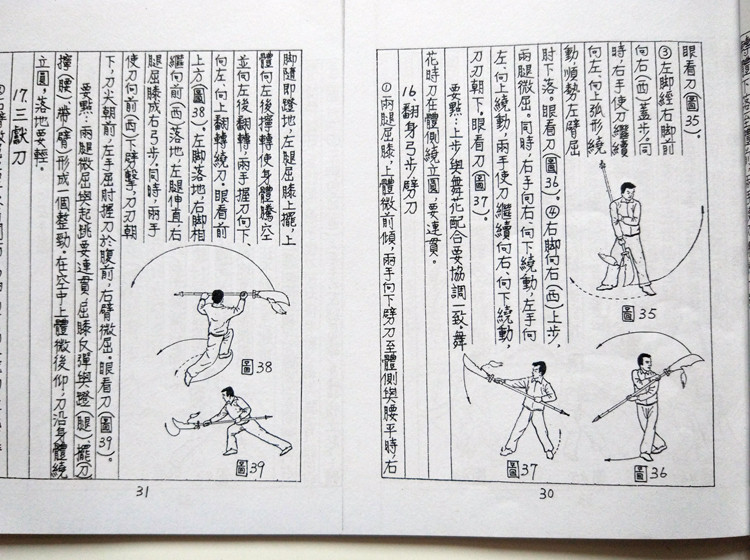 眼看刀(圖35)。
③左脚經右脚前
向右(西)蓋步,同
時,右手使刀繼續
向左、向上弧形繞
動,順勢左臂屈
肘下落。眼看刀(圖36)。④右脚向右(西)上步,
兩腿微屈。同時,右手向右、向下繞動,左手向
左、向上繞動,兩手使刀繼續向右、向下繞動,
刀刃朝下,眼看刀(圖37)。
要點:上步與舞花配合要協調一致。舞
花時刀在體側繞立圓,要連貫。
16.翻身弓步劈刀
①兩腿屈膝,上體微前傾,兩手向下劈刀至體側與腰平時,右
圖35
圖36
圖37
30
脚隨即蹬地,左腿屈膝上擺,上
體向左後擰轉使身體騰空
並向左後翻轉,兩手握刀向下、
向左、向上翻轉繞刀。眼看前
上方(圖38)。左脚落地,右脚相
繼向前(西)落地,左腿伸直,右
腿屈膝成右弓步。同時,兩手
使刀向前(西)下劈擊,刀刃朝
下,刀尖朝前,左手屈肘握刀於腹前,右臂微屈。眼看刀(圖39)。
要點:兩腿微屈與起跳要連貫,屈膝反彈與蹬(腿)、擺(刀)、
擰(腰)、帶(臂)形成一個整勁。在空中上體微後仰,刀沿身體繞
立圓,落地要輕。
17.三獻刀
圖38
圖39
31